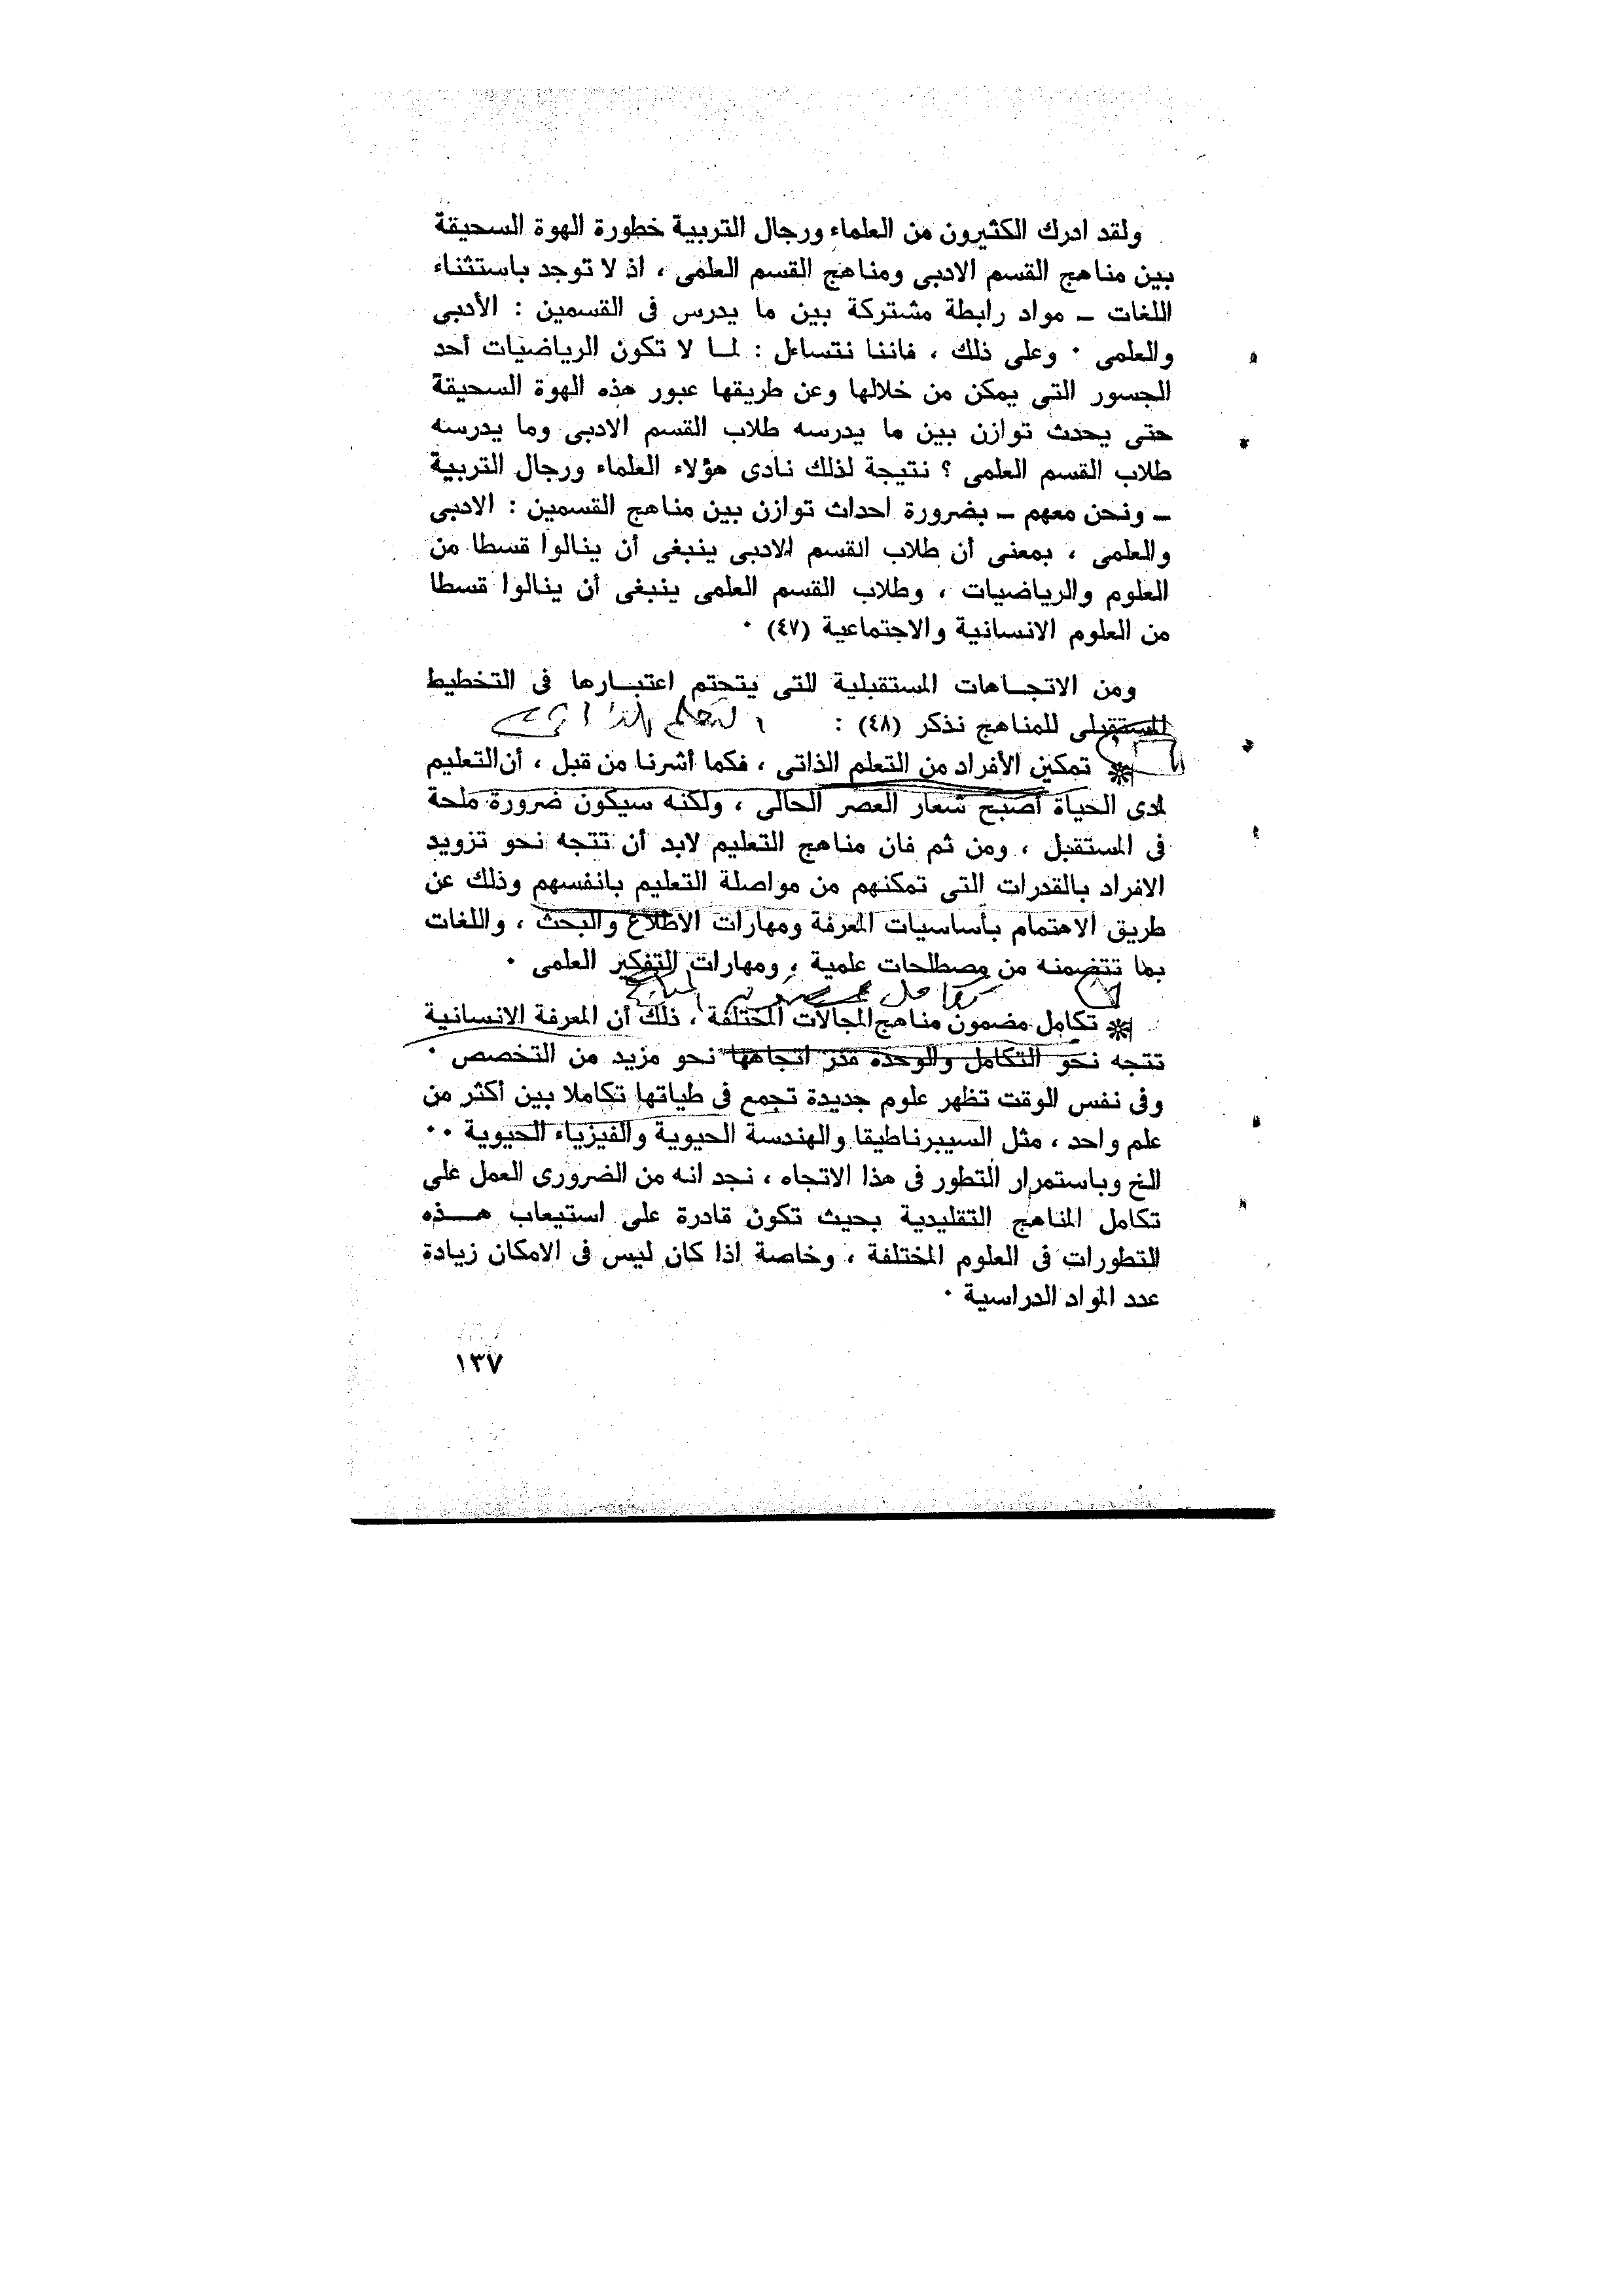 ولقد ادرك الكثيرون من العلماء ورجال التربية خطورة الهوة السحيقة
بين مناهج القسم الادبى ومناهج القسم العلمى ، اذ لا توجد باستثناء
اللغات ـ مواد رابطة مشتركة بين ما يدرس فى القسمين : الأدبى
والعلمى ٠ وعلى ذلك ، فاننا نتساءل : لما لا تكون الرياضيات أحد
الجسور التى يمكن من خلالها وعن طريقها عبور هذه الهوة السحيقة
حتى يحدث توازن بين ما يدرسه طلاب القسم الادبى وما يدرسه
طلاب القسم العلمى ؟ نتيجة لذلك نادى هؤلاء العلماء ورجال التربية
ـ ونحن معهم ـ بضرورة احداث توازن بين مناهج القسمين : الادبى
والعلمى ، بمعنى أن طلاب القسم الادبى ينبغى أن ينالوا قسطا من
العلوم والرياضيات ، وطلاب القسم العلمى ينبغى أن ينالوا قسطا
من العلوم الانسانية والاجتماعية (٤٧) ٠
ومن الاتجاهات المستقبلية التى يتحتم اعتبارها فى التخطيط
المستقبلى للمناهج نذكر (٤٨) :
تمكين الأفراد من التعلم الذاتى ، فكما أشرنا من قبل ، أن التعليم
لمدى الحياة أصبح شعار العصر الحالى ، ولكنه سيكون ضرورة ملحة
فى المستقبل ، ومن ثم فان مناهج التعليم لابد أن تتجه نحو تزويد
الافراد بالقدرات التى تمكنهم من مواصلة التعليم بانفسهم وذلك عن
طريق الاهتمام بأساسيات المعرفة ومهارات الاطلاع والبحث ، واللغات
بما تتضمنه من مصطلحات علمية ، ومهارات التفكير العلمى ٠
تكامل مضمون مناهج المجالات المختلفة ، ذلك أن المعرفة الانسانية
تتجه نحو التكامل والوحدة قدر اتجاهها نحو مزيد من التخصص ٠
وفى نفس الوقت تظهر علوم جديدة تجمع فى طياتها تكاملا بين أكثر من
علم واحد ، مثل السيبرناطيقا والهندسة الحيوية والفيزياء الحيوية ٠٠
الخ وباستمرار التطور فى هذا الاتجاه ، نجد انه من الضرورى العمل على
تكامل المناهج التقليدية بحيث تكون قادرة على استيعاب هذه
التطورات فى العلوم المختلفة ، وخاصة اذا كان ليس فى الامكان زيادة
عدد المواد الدراسية ٠
١٣٧